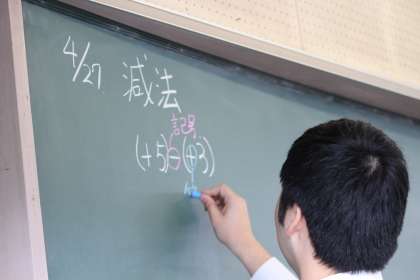 4/27 減法
記号
(+5)-(+3)